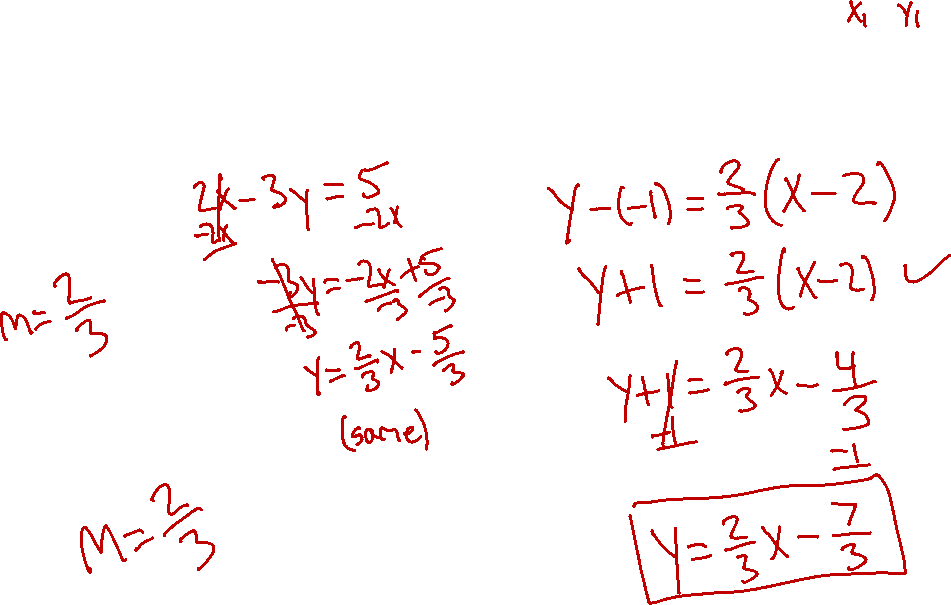 x₁ y₁
2x - 3y = 5
-2x -2x
-3y = -2x + 5
-3 -3 -3
y = 2/3 x - 5/3
(same)
m = 2/3
m = 2/3
y - (-1) = 2/3 (x - 2)
y + 1 = 2/3 (x - 2) ✓
y + 1 = 2/3 x - 4/3
-1 -1
y = 2/3 x - 7/3